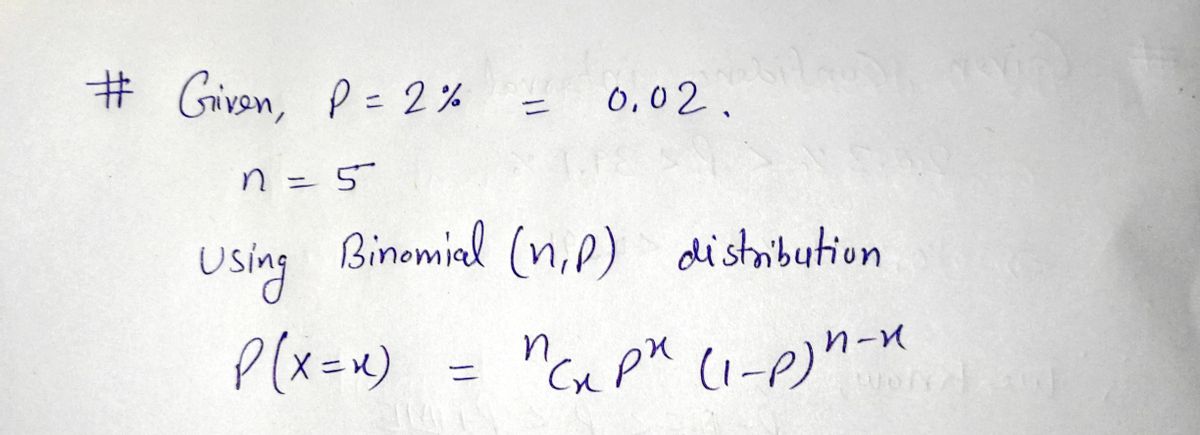 # Given, P = 2% = 0.02.
n = 5
Using Binomial (n,p) distribution
P(x=x) = ⁿCₓ pˣ (1-p)ⁿ⁻ˣ